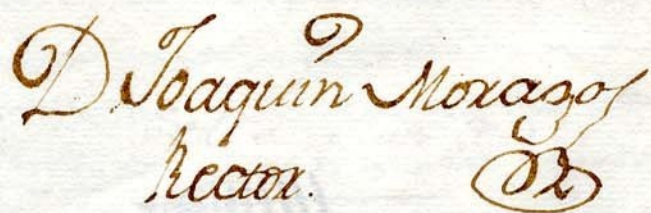 D. Joaquin Morazo
Rector.